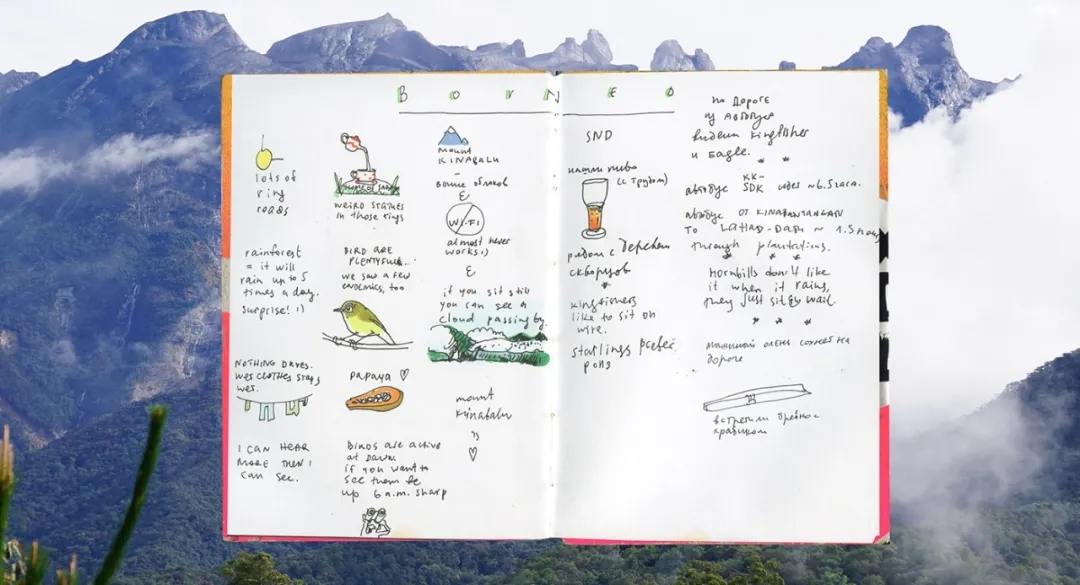 BORNEO
lots of
ring
roads
weird statues
in those rings
mount
KINABALU
–
выше облаков
&
Wi-Fi
almost never
works :)
&
if you sit still
you can see a
cloud passing by.
rainforest
= it will
rain up to 5
times a day.
surprise! :)
BIRD ARE
PLENTYFULL...
we saw a few
endemics, too
NOTHING DRYES.
WES CLOTHES STAYS
WES.
papaya ♡
mount
Kynabalu
:)
♡
I CAN HEAR
MORE THEN I
CAN SEE.
Birds are active
at dawn.
if you want to
see them be
up 6 a.m. sharp
SND
нашли пиво
(с трудом)
рядом с деревом
скворцов
*
kingfishers
like to sit on
wire.
starlings prefer
polls
по дороге
из автобуса
видели kingfisher
и Eagle.
* *
автобус KK-
SDK идет ~6.5 часа.
автобус от KINABANTANGAN
TO LAHAD-DATU ~ 1.5 hours
through plantations.
* * *
Hornbills don't like
it when it rains,
they just sit & wait.
* * *
на
дороге
встретили бревно с